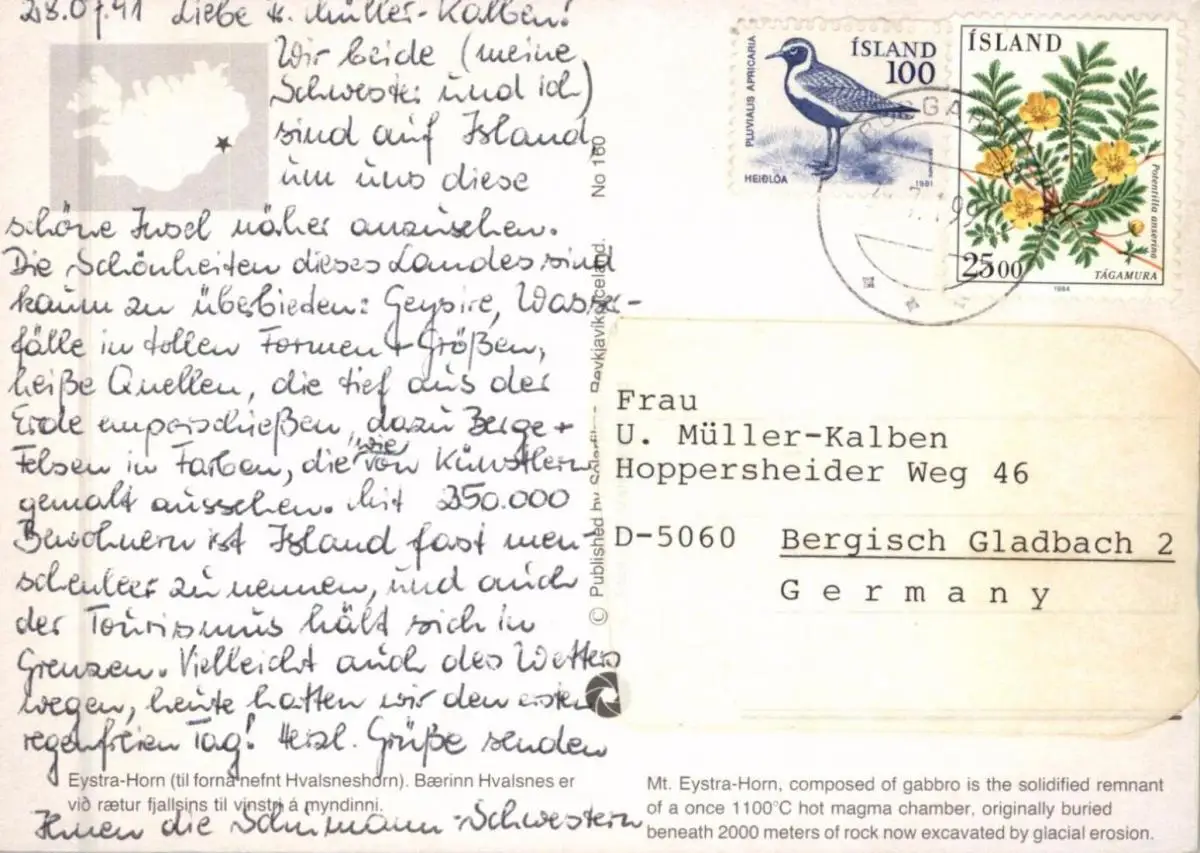 28.07.91 Liebe Fr. Müller-Kalben!
Wir beide (meine
Schwester und ich)
sind auf Island,
um uns diese
schöne Insel näher anzusehen.
Die Schönheiten dieses Landes sind
kaum zu überbieten: Geysire, Wasser-
fälle in tollen Formen + Größen,
heiße Quellen, die tief aus der
Erde emporschießen, dazu Berge +
Felsen in Farben, die wie von Künstlern
gemalt aussehen. Mit 250.000
Bewohnern ist Island fast men-
schenleer zu nennen, und auch
der Tourismus hält sich in
Grenzen. Vielleicht auch des Wetters
wegen, heute hatten wir den ersten
regenfreien Tag! Herzl. Grüße senden
Ihnen die Schumann-Schwestern
Eystra-Horn (til forna nefnt Hvalsneshorn). Bærinn Hvalsnes er
við rætur fjallsins til vinstri á myndinni.
No 160
© Published by Reykjavik Iceland.
PLUVIALIS APRICARIA
ÍSLAND
100
HEIÐLÓA
1981
ÍSLAND
Potentilla anserina
2500
TÁGAMURA
1984
Frau
U. Müller-Kalben
Hoppersheider Weg 46
D-5060 Bergisch Gladbach 2
Germany
Mt. Eystra-Horn, composed of gabbro is the solidified remnant
of a once 1100°C hot magma chamber, originally buried
beneath 2000 meters of rock now excavated by glacial erosion.